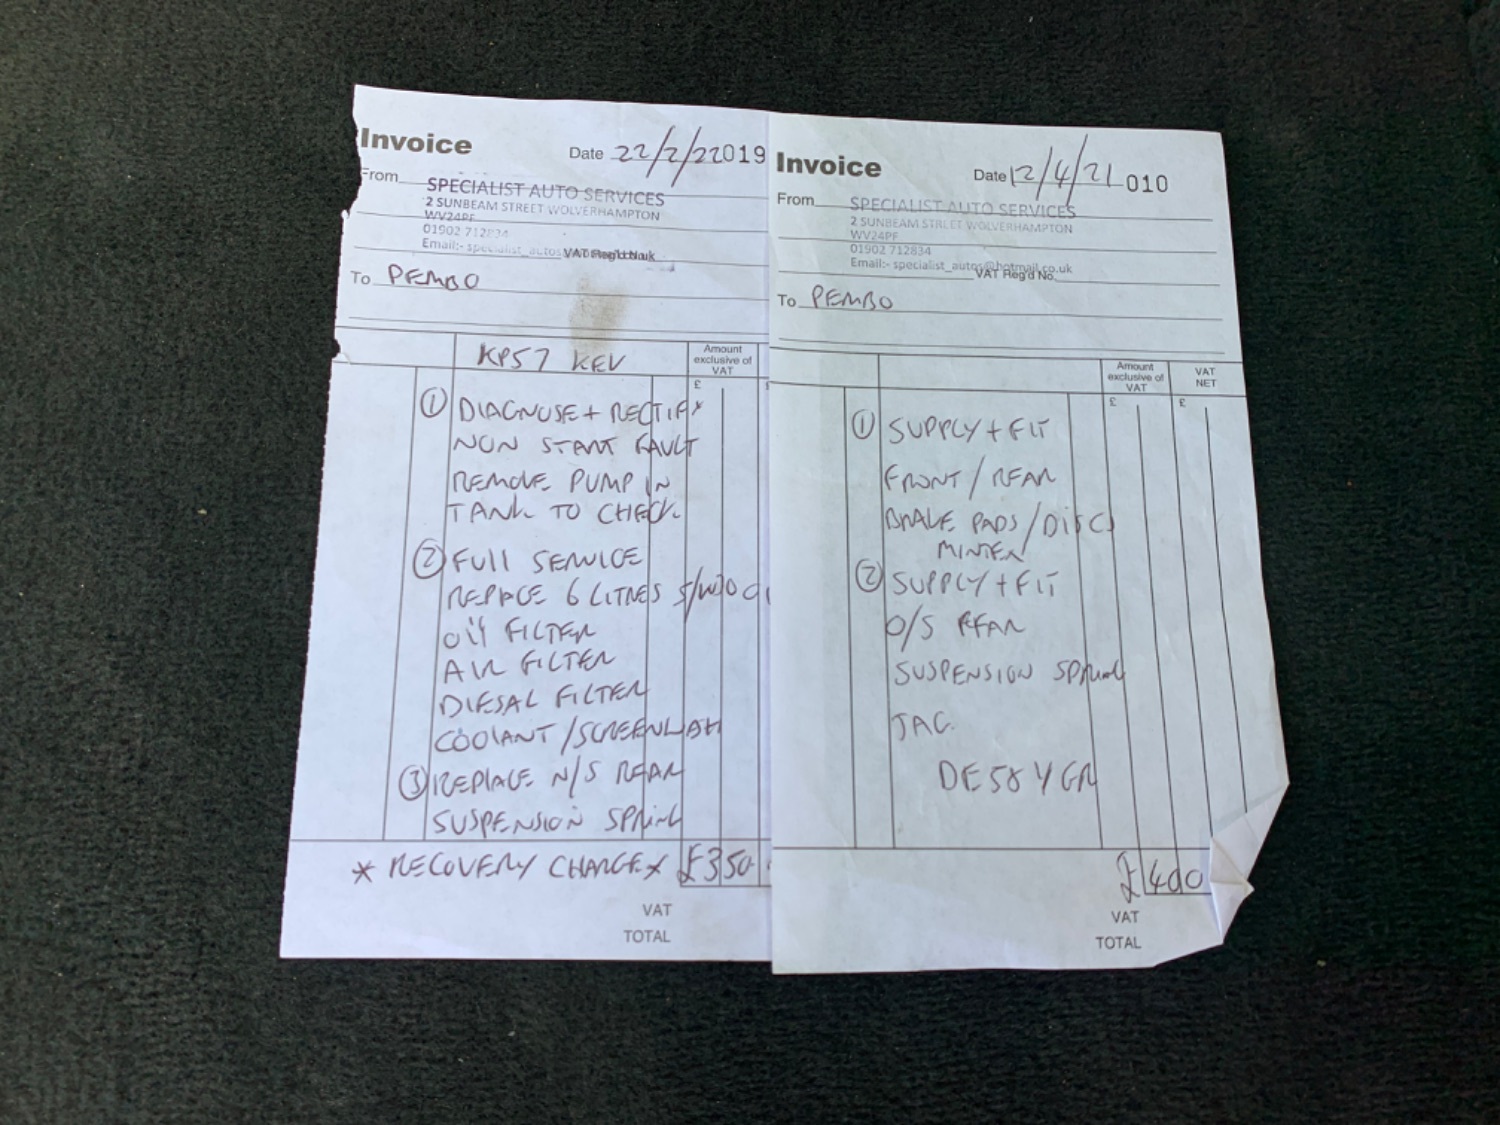 Invoice
Date 22/2/22 019
From
SPECIALIST AUTO SERVICES
2 SUNBEAM STREET WOLVERHAMPTON
WV24PF
01902 712834
Email:- specialist_autos
VAT Reg'd No.
To PEMBO
KP57 KEV
Amount
exclusive of
VAT
£
① DIAGNOSE + RECTIFY
NON START FAULT
REMOVE PUMP IN
TANK TO CHECK
② FULL SERVICE
REPLACE 6 LITRES 5/W30
OIL FILTER
AIR FILTER
DIESAL FILTER
COOLANT/SCREENWASH
③ REPLACE N/S REAR
SUSPENSION SPRING
* RECOVERY CHARGE * £350
VAT
TOTAL
Invoice
Date 12/4/21 010
From
SPECIALIST AUTO SERVICES
2 SUNBEAM STREET WOLVERHAMPTON
WV24PF
01902 712834
Email:- specialist_autos@hotmail.co.uk
VAT Reg'd No.
To PEMBO
Amount
exclusive of
VAT
VAT
NET
£
£
① SUPPLY + FIT
FRONT / REAR
BRAKE PADS / DISCS
MINTEX
② SUPPLY + FIT
O/S REAR
SUSPENSION SPRING
JAG.
DE58 YGR
£400
VAT
TOTAL